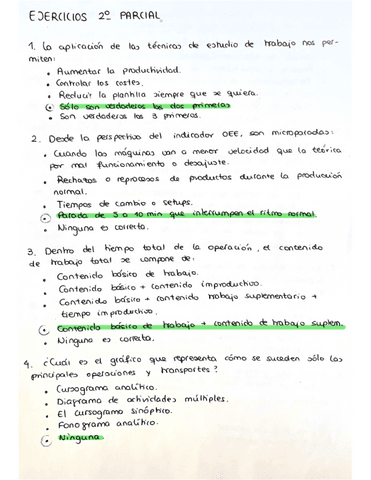 EJERCICIOS 2º PARCIAL
1. La aplicación de las técnicas de estudio de trabajo nos per-
miten:
• Aumentar la productividad.
• Controlar los costes.
• Reducir la plantilla siempre que se quiera.
• Sólo son verdaderas las dos primeras
• Son verdaderas las 3 primeras.
2. Desde la perspectiva del indicador OEE, son microparadas:
• Cuando las máquinas van a menor velocidad que la teórica
por mal funcionamiento o desajuste.
• Rechazos o reprocesos de productos durante la producción
normal.
• Tiempos de cambio o setups.
• Parada de 5 o 10 min que interrumpen el ritmo normal.
• Ninguna es correcta.
3. Dentro del tiempo total de la operación, el contenido
de trabajo total se compone de:
• Contenido básico de trabajo.
• Contenido básico + contenido improductivo.
• Contenido básico + contenido trabajo suplementario +
tiempo improductivo.
• Contenido básico de trabajo + contenido de trabajo suplem.
• Ninguna es correcta.
4. ¿Cuál es el gráfico que representa cómo se suceden sólo las
principales operaciones y transportes?
• Cursograma analítico.
• Diagrama de actividades múltiples.
• El cursograma sinóptico.
• Fonograma analítico.
• Ninguna